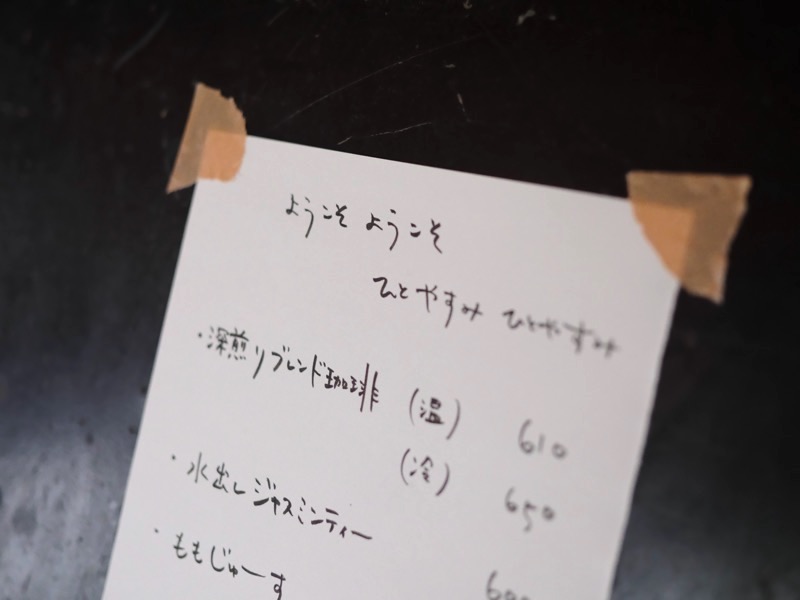 ようこそ ようこそ
ひとやすみ ひとやすみ
・深煎りブレンド珈琲 (温) 610
(冷) 650
・水出しジャスミンティー
・ももじゅーす